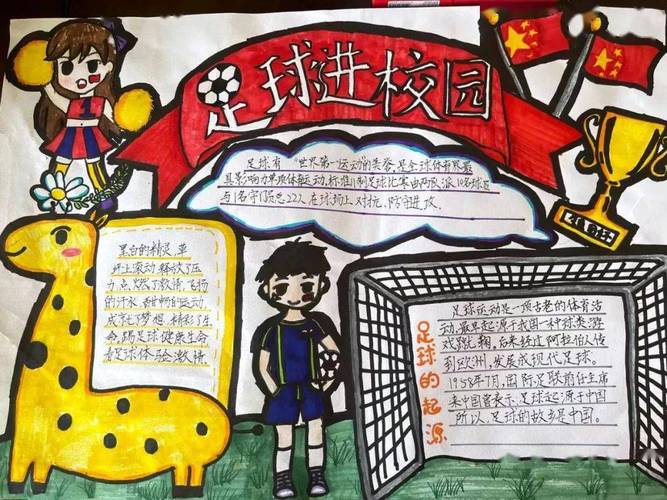 足球进校园
足球有"世界第一运动"的美誉,是全球体育界最
具影响力单项体育运动,标准11制足球比赛由两队派10名球员
与1名守门员总22人,在球场上对抗,防守进攻。
黑白的精灵,草
坪上滚动,释放了压
力,点燃了激情,飞扬
的汗水,酣畅的运动
成就了梦想,精彩了生
命,踢足球健康生命
足球体验激情
足球的起源
足球运动是一项古老的体育活
动,最早起源于我国一种球类游
戏"蹴鞠",后来经过阿拉伯人传
到欧洲,发展成现代足球。
1958年7月,国际足联前任主席
来中国曾表示,足球起源于中国
所以,足球的故乡是中国。